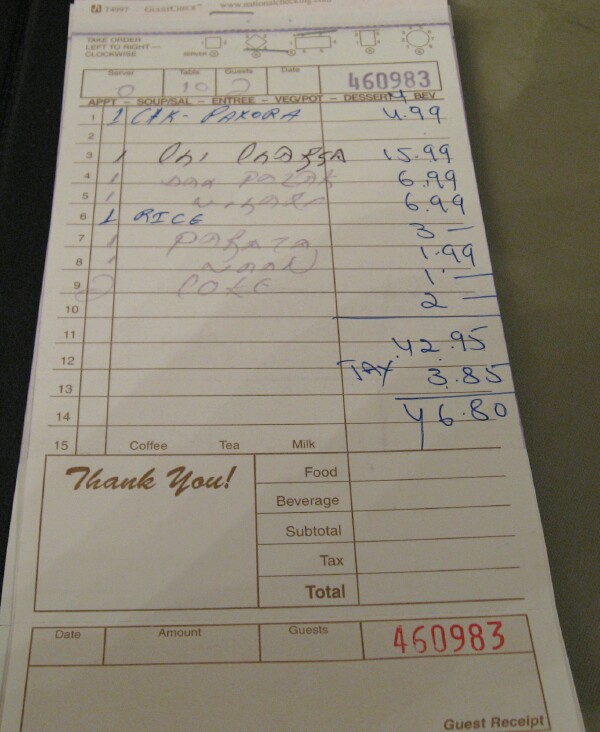 T4997 GUESTCHECK™ www.nationalchecking.com
TAKE ORDER
LEFT TO RIGHT —
CLOCKWISE
Server Table Guests Date
0 10 2 460983
APPT - SOUP/SAL - ENTREE - VEG/POT - DESSERT - BEV
1 1 CHK- PAKORA 4.99
2
3 1 15.99
4 1 6.99
5 1 6.99
6 1 RICE 3 —
7 1 PARATA 1.99
8 1 NAAN 1 —
9 2 COKE 2 —
10
11 42.95
12 TAX 3.85
13 46.80
14
15 Coffee Tea Milk
Thank You!
Food
Beverage
Subtotal
Tax
Total
Date Amount Guests 460983
Guest Receipt